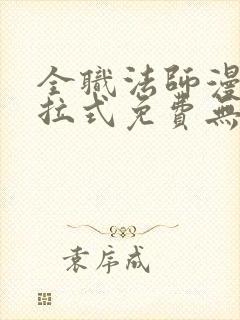 全職法師漫
拉式免費無
袁序成